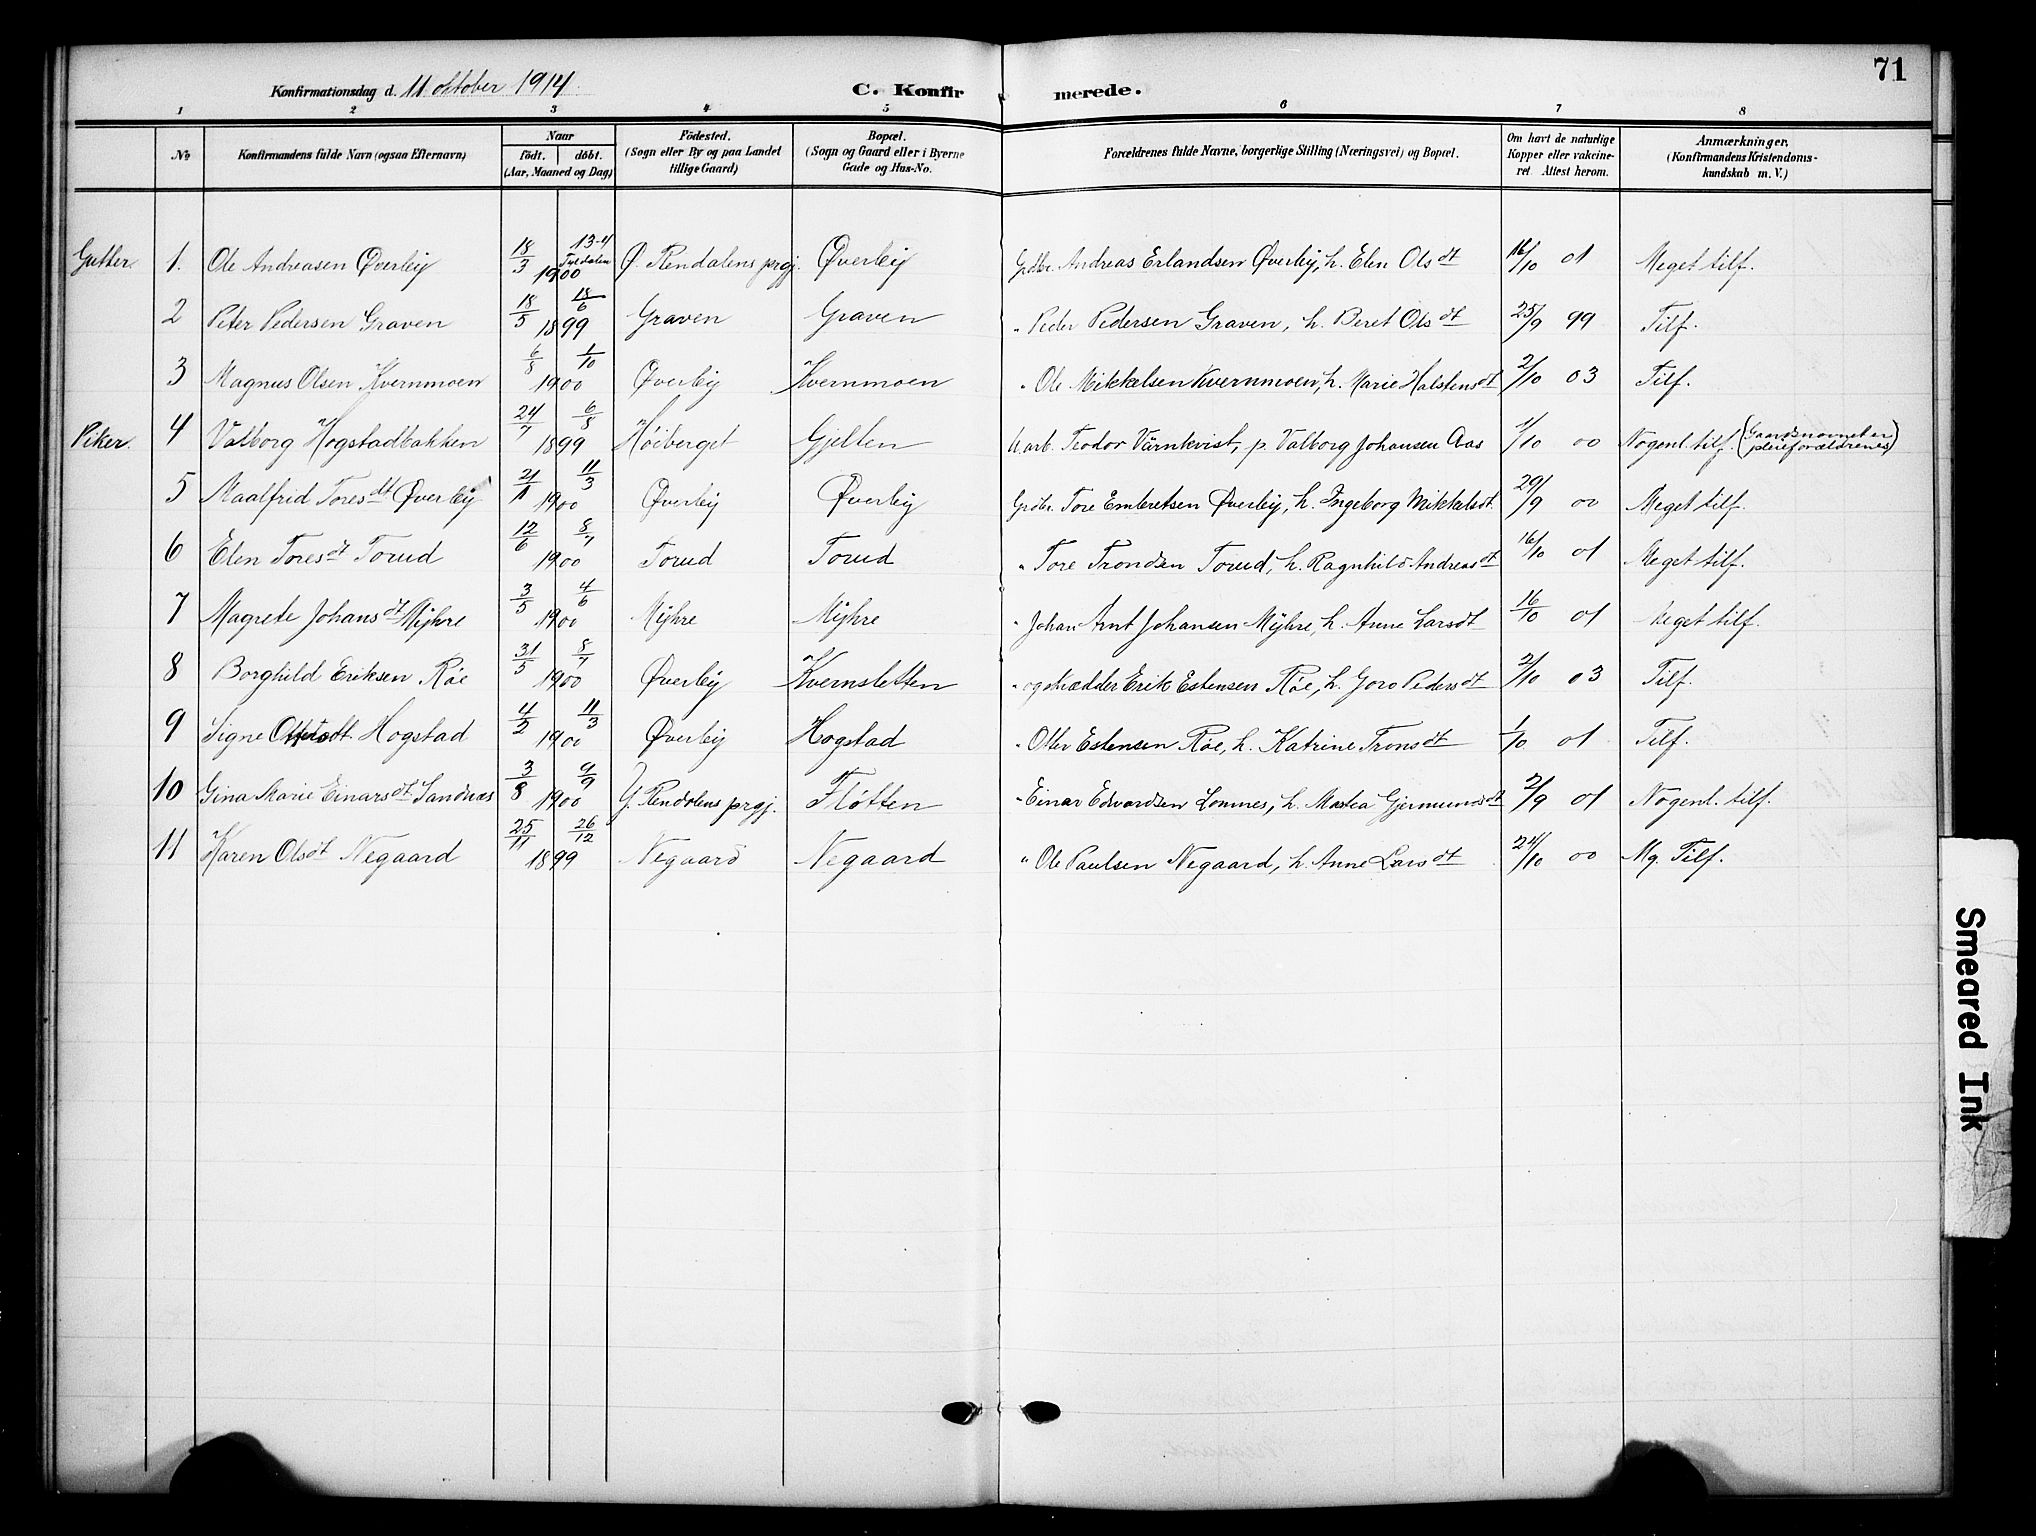 71
Konfirmationsdag d. 11 oktober 1914.
C. Konfirmerede.
1 2 3 4 5 6 7 8
No
Konfirmandens fulde Navn (ogsaa Efternavn)
Naar
födt. döbt.
(Aar, Maaned og Dag)
Födested.
(Sogn eller By og paa Landet
tillige Gaard)
Bopæl.
(Sogn og Gaard eller i Byerne
Gade og Hus-No.
Forældrenes fulde Navne, borgerlige Stilling (Næringsvei) og Bopæl.
Om havt de naturlige
Kopper eller vakcine-
ret Attest herom.
Anmærkninger.
(Konfirmandens Kristendoms-
kundskab m. V.)
Gutter. 1. Ole Andreasen Øverby 18/3 13-4 Tyldalen 1900 Ø. Rendalens prgj. Øverby Grdbr. Andreas Erlandsen Øverby, h. Elen Olsdt 16/10 01 Meget tilf.
2 Peter Pedersen Graven 18/5 18/6 1899 Graven Graven " Peder Pedersen Graven, h. Beret Olsdt 25/9 99 Tilf.
3 Magnus Olsen Kvernmoen 6/8 1/10 1900 Øverby Kvernmoen " Ole Mikkelsen Kvernmoen, h. Marie Halstensdt 2/10 03 Tilf.
Piker. 4 Valborg Hogstadbakken 24/7 6/8 1899 Høiberget Gjelten U. arb. Teodor Värnkvist, p. Valborg Johansen Aas 1/10 00 Nogenl. tilf. (Gaardsnavnet er pleieforældrenes)
5 Maalfrid Toresdt Øverby 21/1 11/3 1900 Øverby Øverby Grdbr. Tore Embretsen Øverby, h. Ingeborg Mikkelsdt. 29/9 00 Meget tilf.
6 Elen Toresdt Torud 12/6 8/7 1900 Torud Torud " Tore Trondsen Torud, h. Ragnhild Andreasdt 16/10 01 Meget tilf.
7 Magrete Johansdt Myhre 3/5 4/6 1900 Myhre Myhre " Johan Arnt Johansen Myhre, h. Anne Larsdt 16/10 01 Meget tilf.
8 Borghild Eriksen Røe 31/5 8/7 1900 Øverby Kvernsletten " og skrædder Erik Estensen Røe, h. Goro Pedersdt 2/10 03 Tilf.
9 Signe Hogstad 4/2 11/3 1900 Øverby Hogstad " Otter Estensen Røe, h. Katrine Tronsdt 1/10 01 Tilf.
10 Gina Marie Einarsdt Sandnes 3/8 9/9 1900 Y. Rendalens prgj. Fløtten " Einar Edvardsen Lomnes, h. Gjermundsdt 2/9 01 Nogenl. tilf.
11 Karen Olsdt Negaard 25/11 26/12 1899 Negaard Negaard " Ole Paulsen Negaard, h. Anne Larsdt 24/10 00 Mg. Tilf.
Smeared Ink